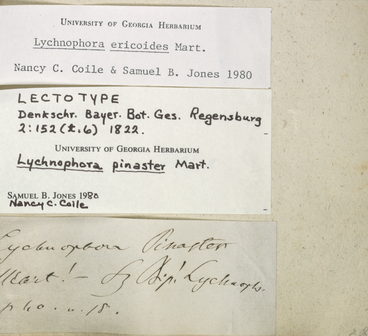 UNIVERSITY OF GEORGIA HERBARIUM
Lychnophora ericoides Mart.
Nancy C. Coile & Samuel B. Jones 1980
LECTOTYPE
Denkschr. Bayer. Bot. Ges. Regensburg
2:152 (t.6) 1822.
UNIVERSITY OF GEORGIA HERBARIUM
Lychnophora pinaster Mart.
SAMUEL B. JONES 1980
Nancy C. Coile
Lychnophora Pinaster
Mart! – Sz Bip! Lychnoph.
p 40. n. 18.